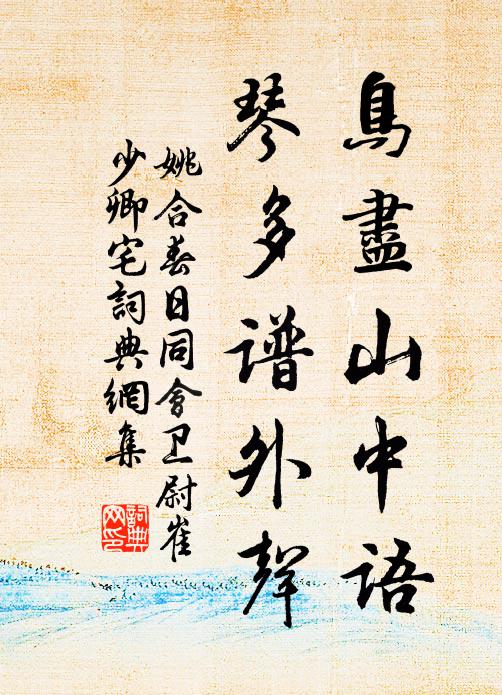 鳥盡山中語
琴多譜外聲
姚合春日同會卫尉崔
少卿宅詞典網集
詞典
网印